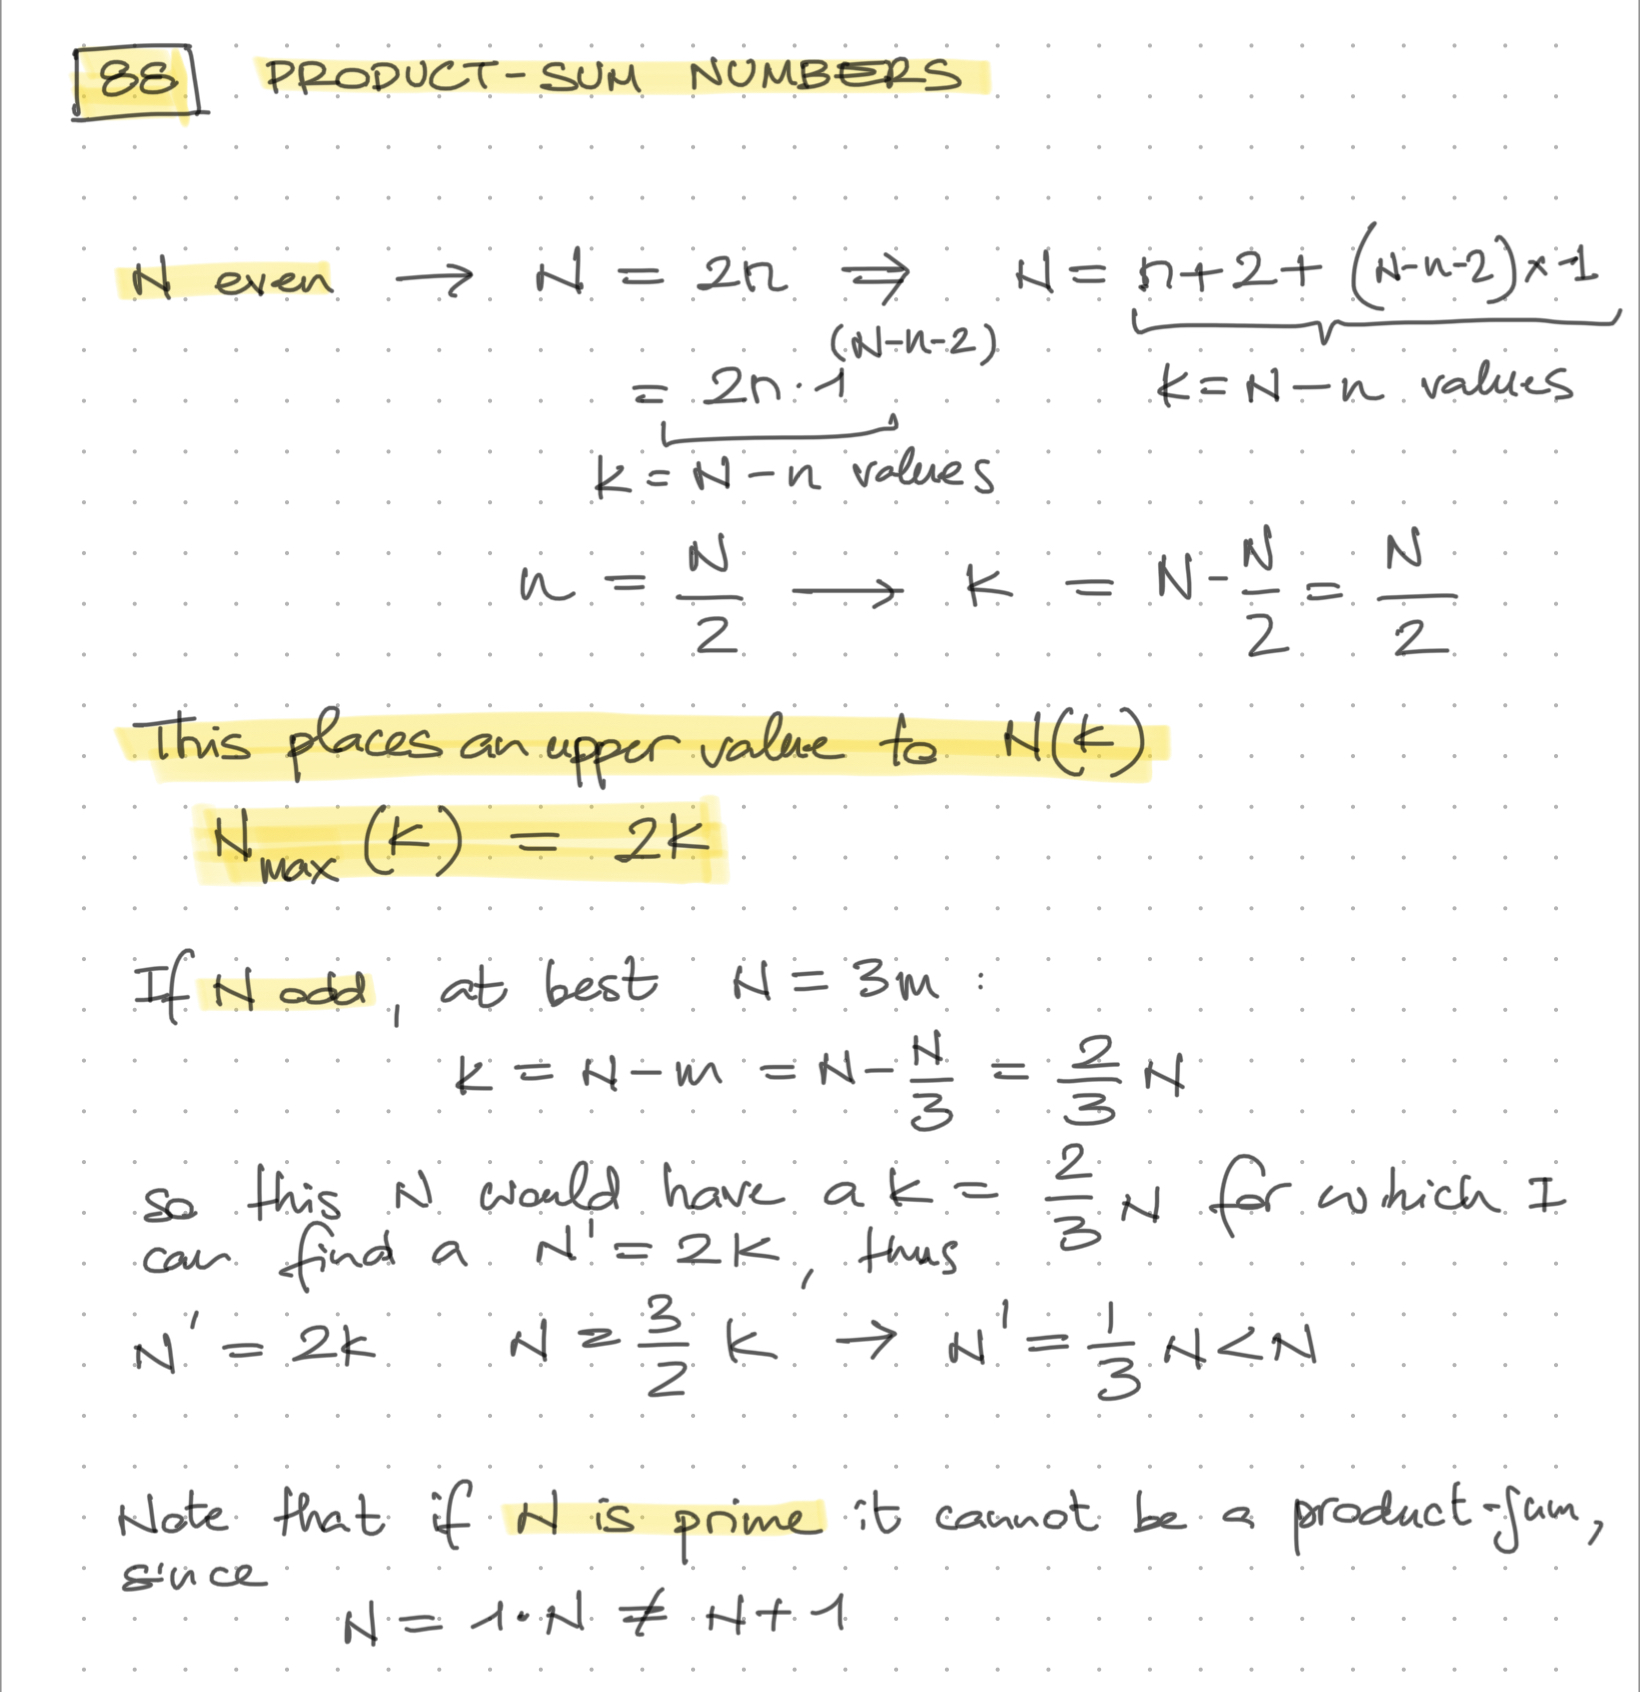 88 PRODUCT-SUM NUMBERS
N even → N = 2n ⇒ N = n+2+(N-n-2)×1
= 2n·1^(N-n-2)
k = N-n values
k = N-n values
n = N/2 → k = N-N/2 = N/2
This places an upper value to N(k)
N_max (k) = 2k
If N odd, at best N = 3m :
k = N-m = N-N/3 = 2/3 N
so this N would have a k = 2/3 N for which I
can find a N' = 2k, thus
N' = 2k N = 3/2 k → N' = 1/3 N < N
Note that if N is prime it cannot be a product-sum,
since
N = 1·N ≠ N+1